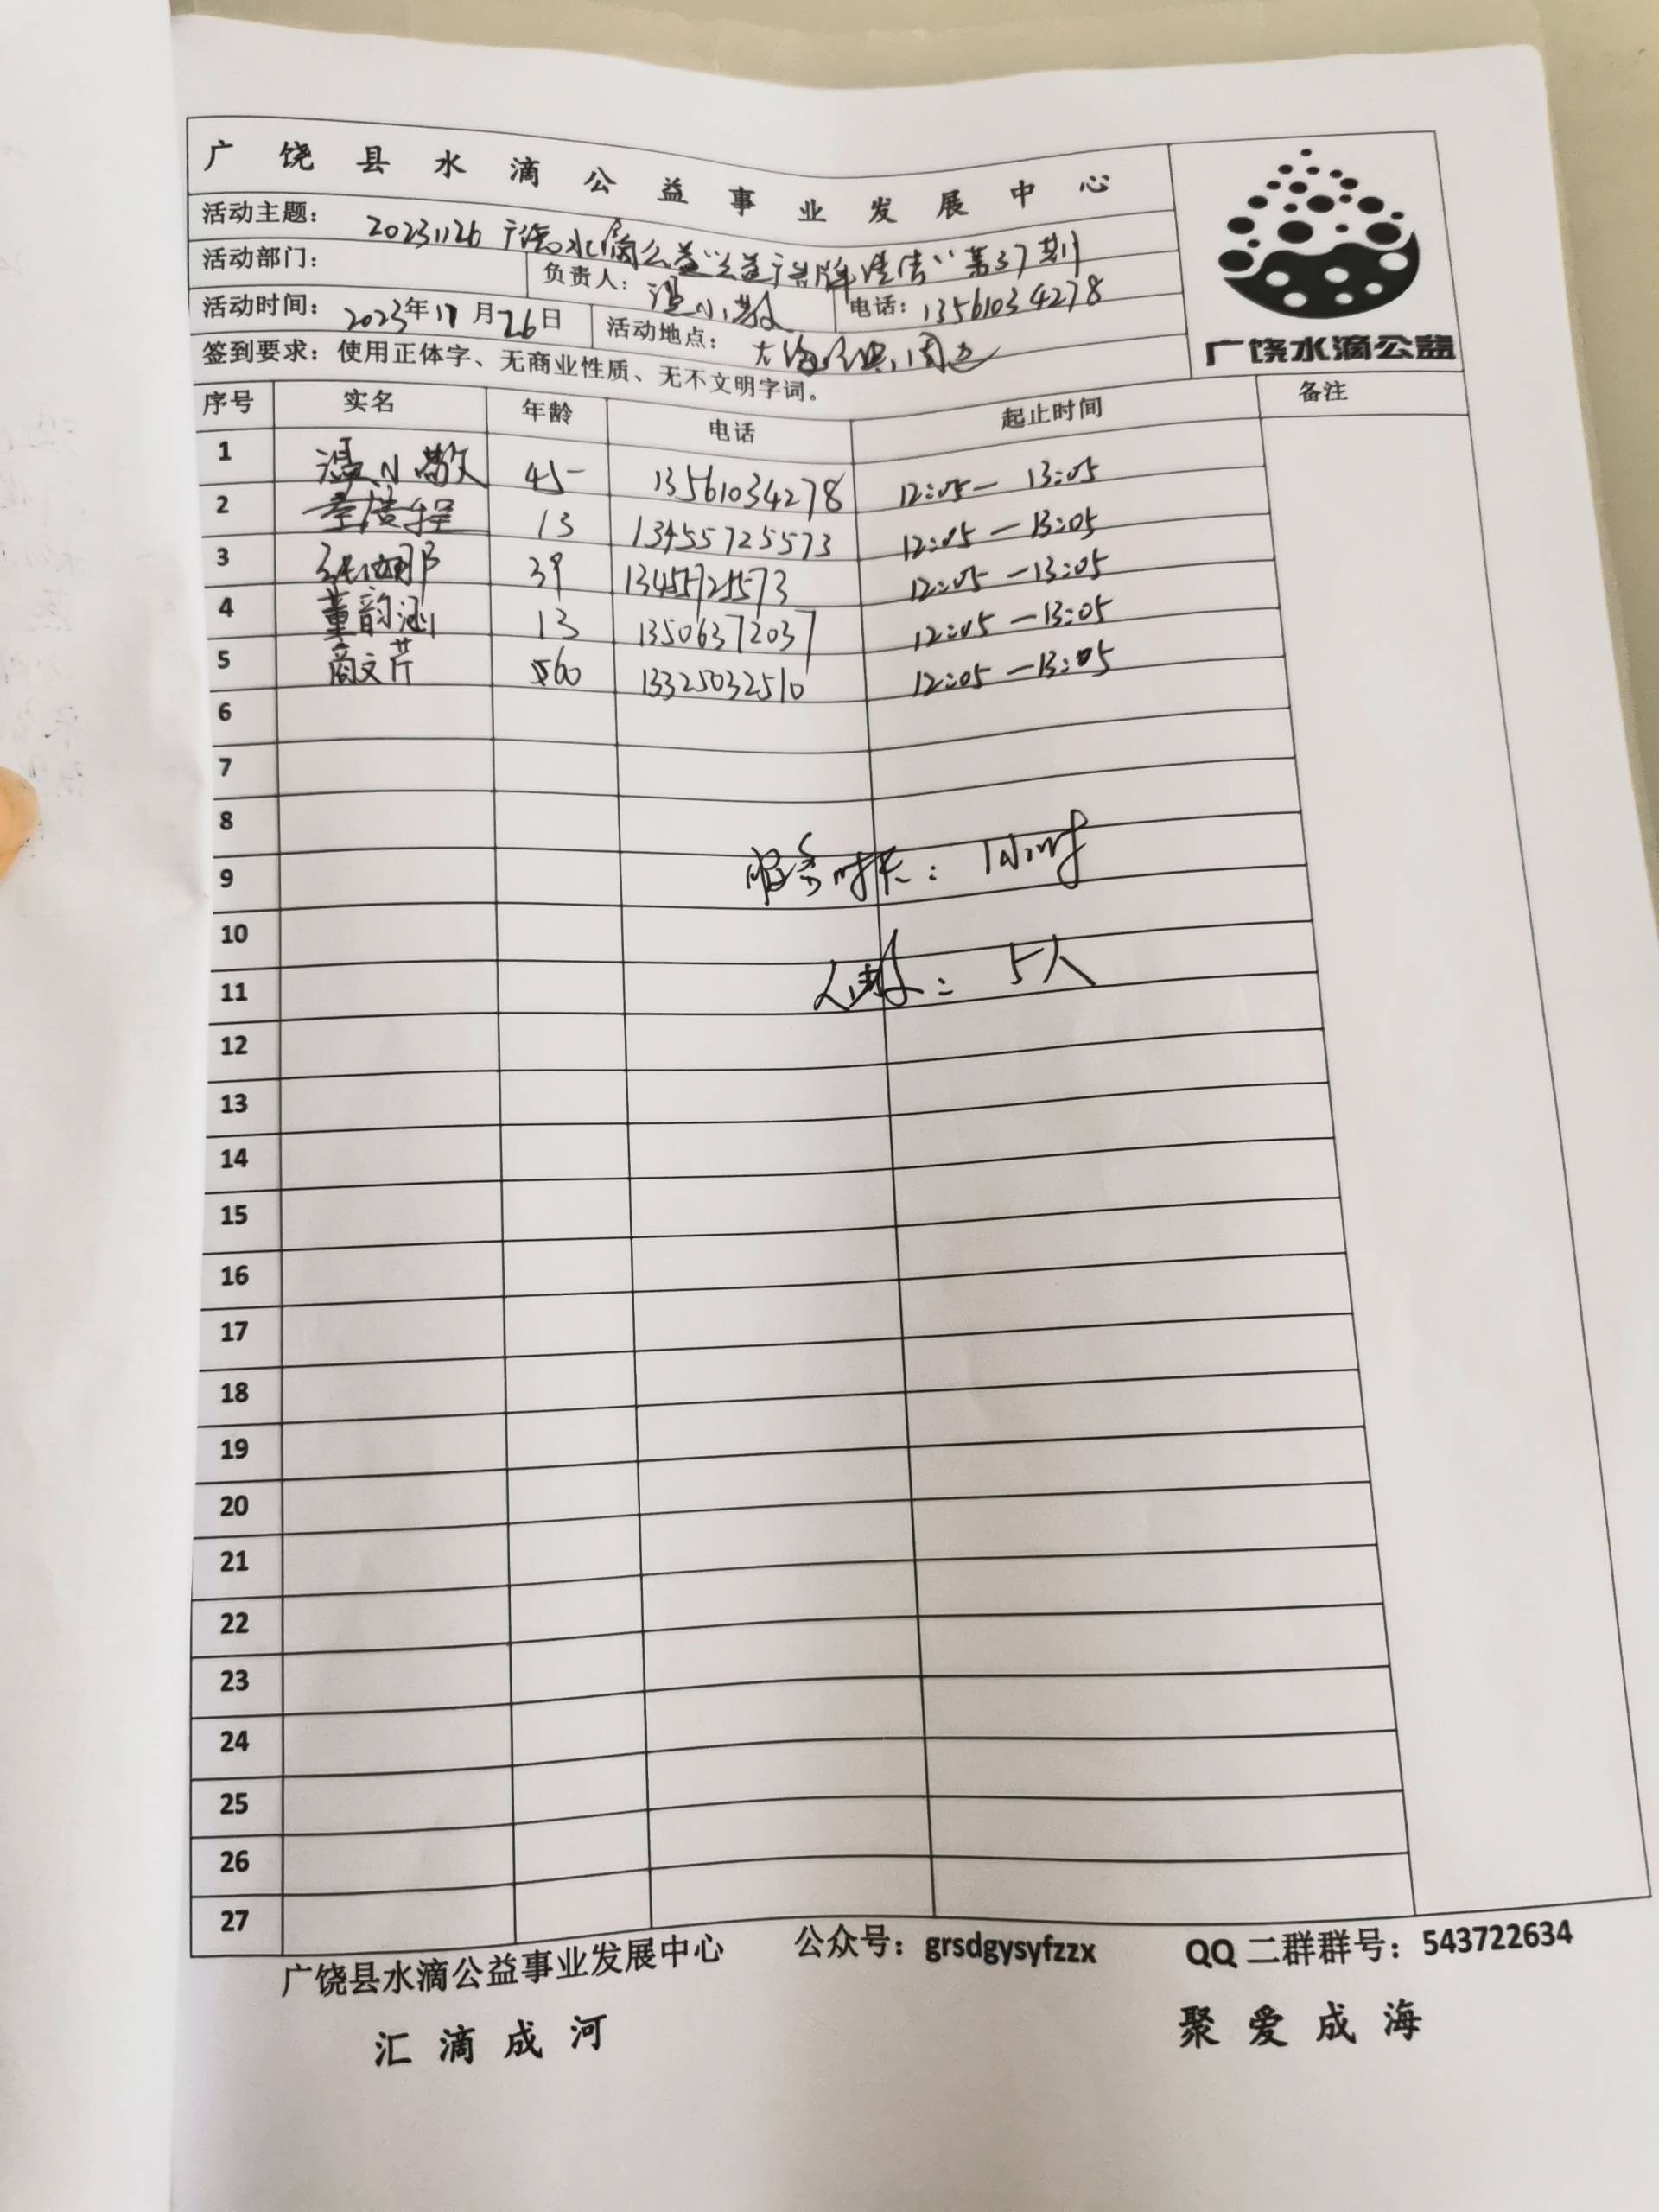 广饶县水滴公益事业发展中心
广饶水滴公益
活动主题: 20231126 广饶水滴公益"公益广告牌清洁"第37期
活动部门: 负责人: 温小敬 电话: 13561034278
活动时间: 2023年11月26日 活动地点: 周边
签到要求:使用正体字、无商业性质、无不文明字词。
序号 实名 年龄 电话 起止时间 备注
1 温小敬 45 13561034278 12:05-13:05
2 13 13455725573 12:05-13:05
3 39 13455725573 12:05-13:05
4 董韵涵 13 13506372037 12:05-13:05
5 商文芹 60 13325032510 12:05-13:05
6
7
8
服务时长: 1小时
9
10
人数: 5人
11
12
13
14
15
16
17
18
19
20
21
22
23
24
25
26
27
广饶县水滴公益事业发展中心 公众号:grsdgysyfzzx QQ 二群群号:543722634
汇滴成河 聚爱成海